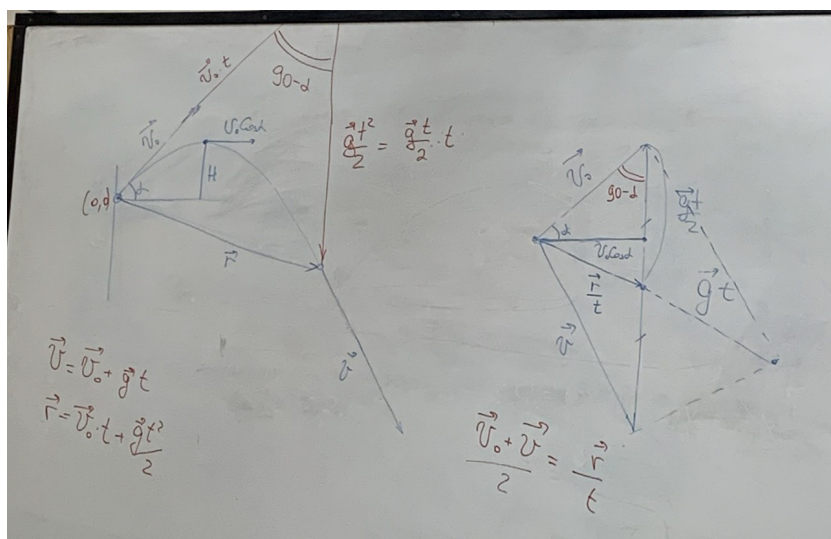 v⃗₀·t
90-α
v⃗₀
v₀cosα
g⃗t²/2 = g⃗t/2 · t
α
H
(0,0)
r⃗
v⃗
v⃗ = v⃗₀ + g⃗t
r⃗ = v⃗₀·t + g⃗t²/2
v⃗₀
90-α
g⃗t/2
α
v₀cosα
r⃗/t
g⃗t
v⃗
(v⃗₀ + v⃗)/2 = r⃗/t